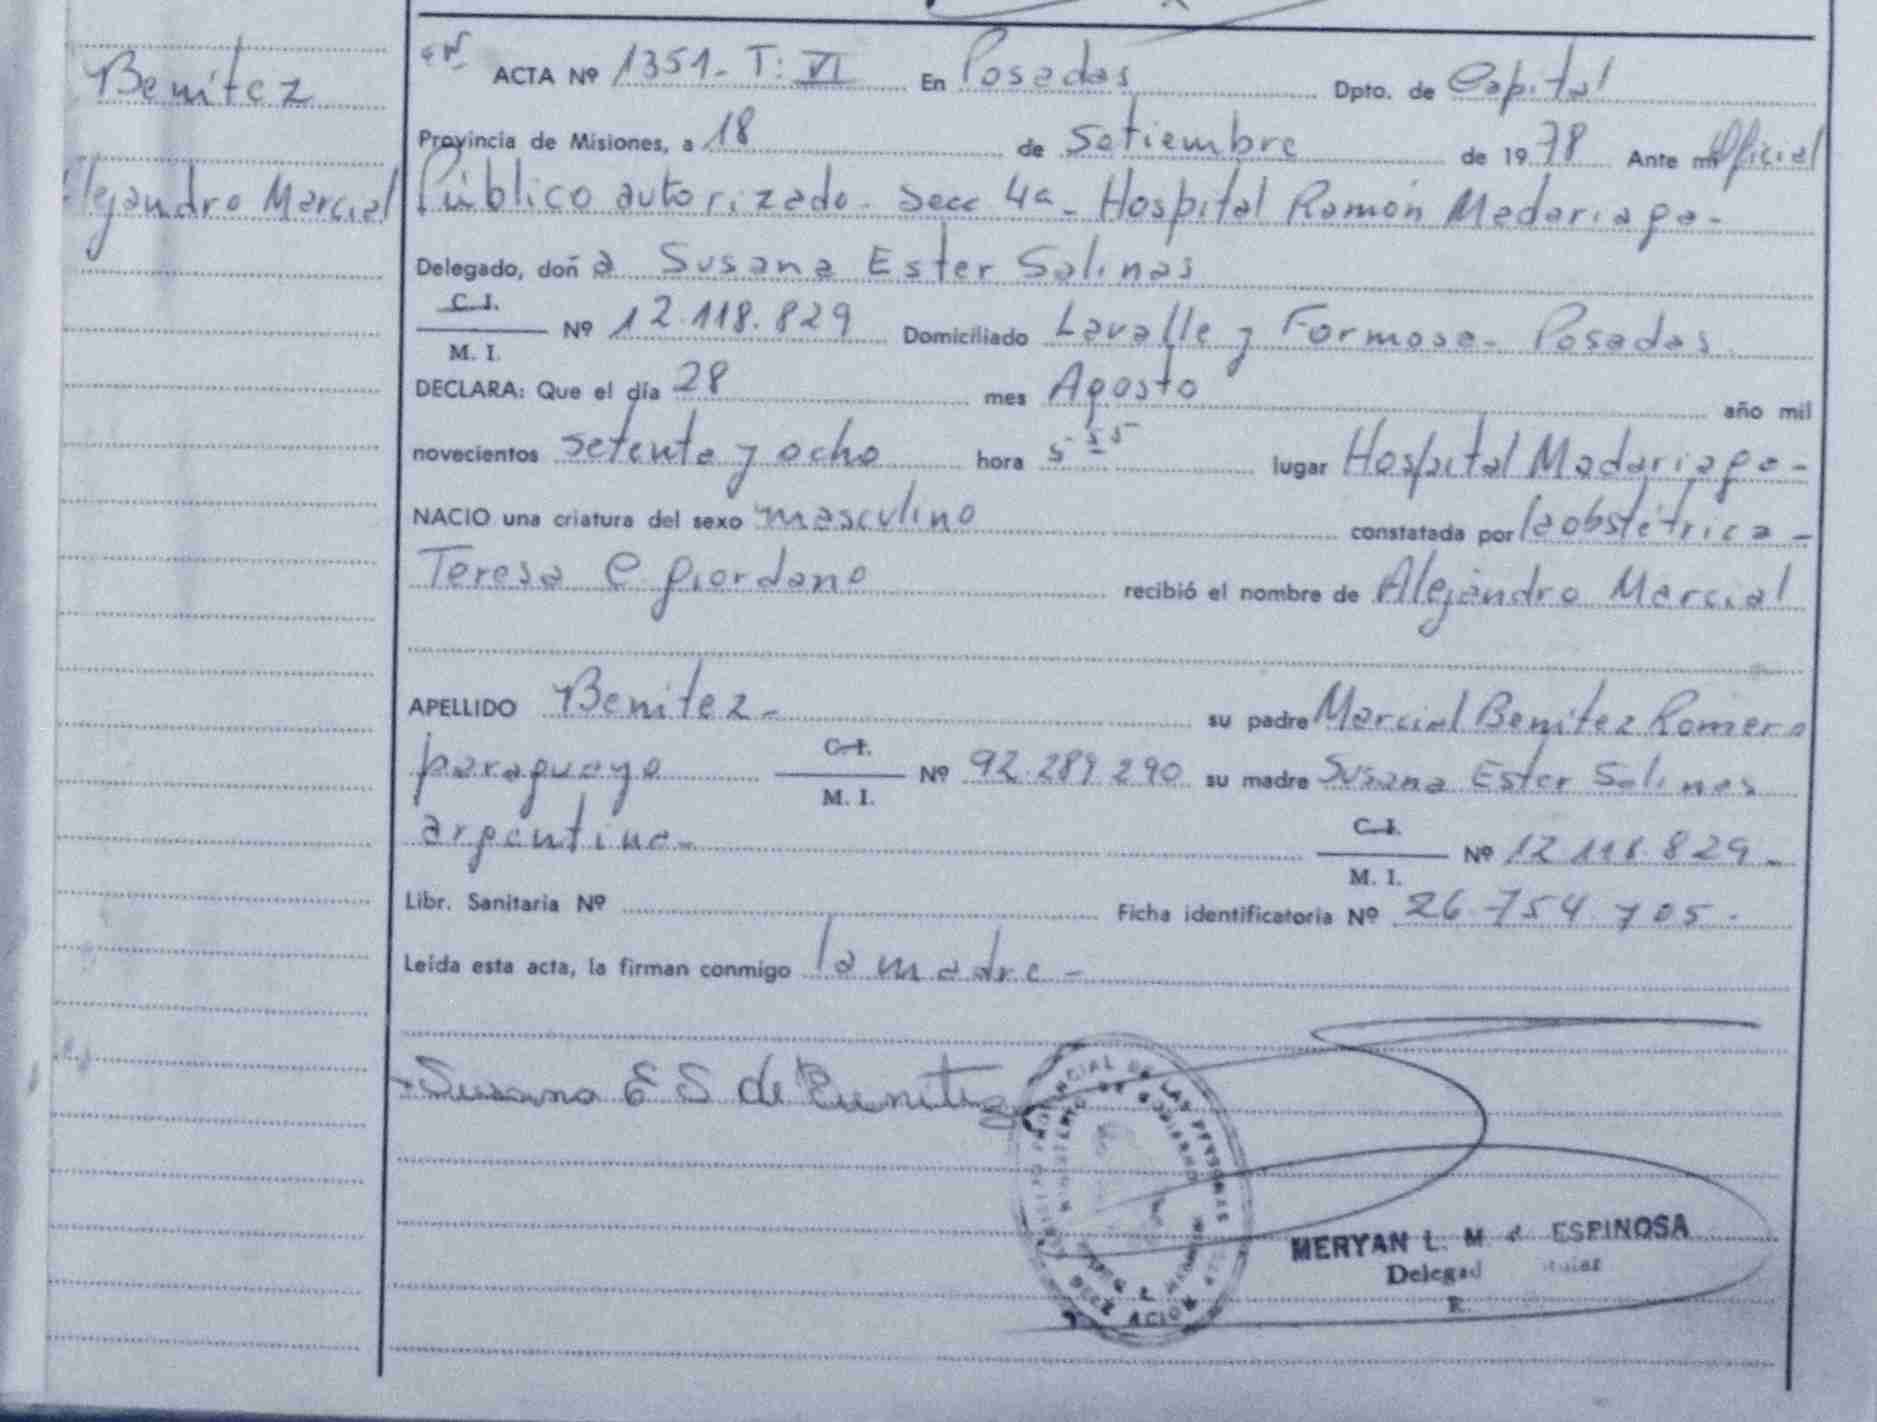 Benítez
Alejandro Marcial
ACTA Nº 1351- T: VI En Posadas Dpto. de Capital
Provincia de Misiones, a 18 de Setiembre de 1978 Ante mi Oficial
Público autorizado- Secc 4a- Hospital Ramón Madariaga-
Delegado, doña Susana Ester Salinas
C. I.
Nº 12.118.829 Domiciliado Lavalle y Formosa- Posadas
M. I.
DECLARA: Que el día 28 mes Agosto año mil
novecientos setenta y ocho hora 5 55 lugar Hospital Madariaga-
NACIO una criatura del sexo masculino constatada por la obstétrica-
Teresa C. Giordano recibió el nombre de Alejandro Marcial
APELLIDO Benítez- su padre Marcial Benítez Romero
C. I.
paraguayo Nº 92.289.290 su madre Susana Ester Salinas
M. I.
C. I.
argentina- Nº 12.118.829-
M. I.
Libr. Sanitaria Nº Ficha identificatoria Nº 26.754.705-
Leída esta acta, la firman conmigo la madre-
Susana E S de Benitez
MERYAN L. M ESPINOSA